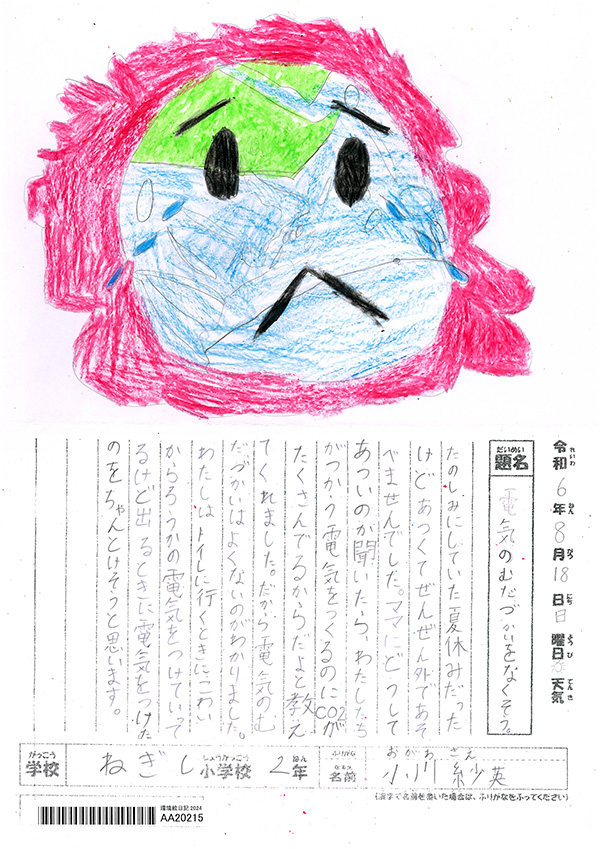 令和6年8月18日日曜日 天気
れいわ ねん がつ にち ようび てんき
だいめい
題名 電気のむだづかいをなくそう。
たのしみにしていた夏休みだった
けどあつくてぜんぜん外であそ
べませんでした。ママにどうして
あついのか聞いたら、わたしたち
がつかう電気をつくるのにCO2が
たくさんでるからだよと教え
てくれました。だから電気のむ
だづかいはよくないのがわかりました。
わたしはトイレに行くときにこわい
からろうかの電気をつけていって
るけど出るときに電気をつけた
のをちゃんとけそうと思います。
がっこう しょうがっこう ねん ふりがな おがわ さえ
学校 ねぎし小学校 2年 なまえ 名前 小川 紗英
(漢字で名前を書いた場合は、ふりがなをふってください)
環境絵日記2024
AA20215